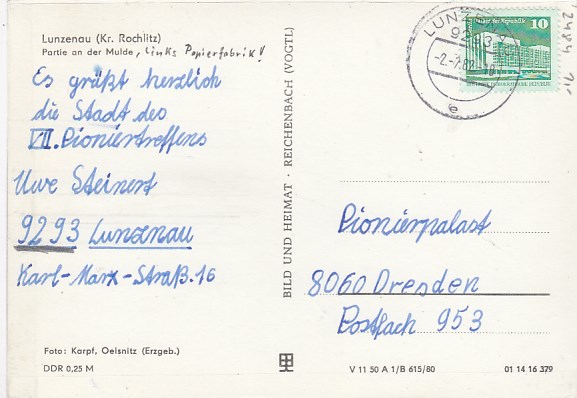 Lunzenau (Kr. Rochlitz)
Partie an der Mulde, links Papierfabrik!
Es grüßt herzlich
die Stadt des
VII. Pioniertreffens
Uwe Steinert
9293 Lunzenau
Karl-Marx-Straß. 16
Foto: Karpf, Oelsnitz (Erzgeb.)
DDR 0,25 M
BILD UND HEIMAT · REICHENBACH (VOGTL)
LUNZENAU
9293
-2.-7.82
e
Palast der Republik 10
DEUTSCHE DEMOKRATISCHE REPUBLIK
2484
Pionierpalast
8060 Dresden
Postfach 953
V 11 50 A 1/B 615/80
01 14 16 379